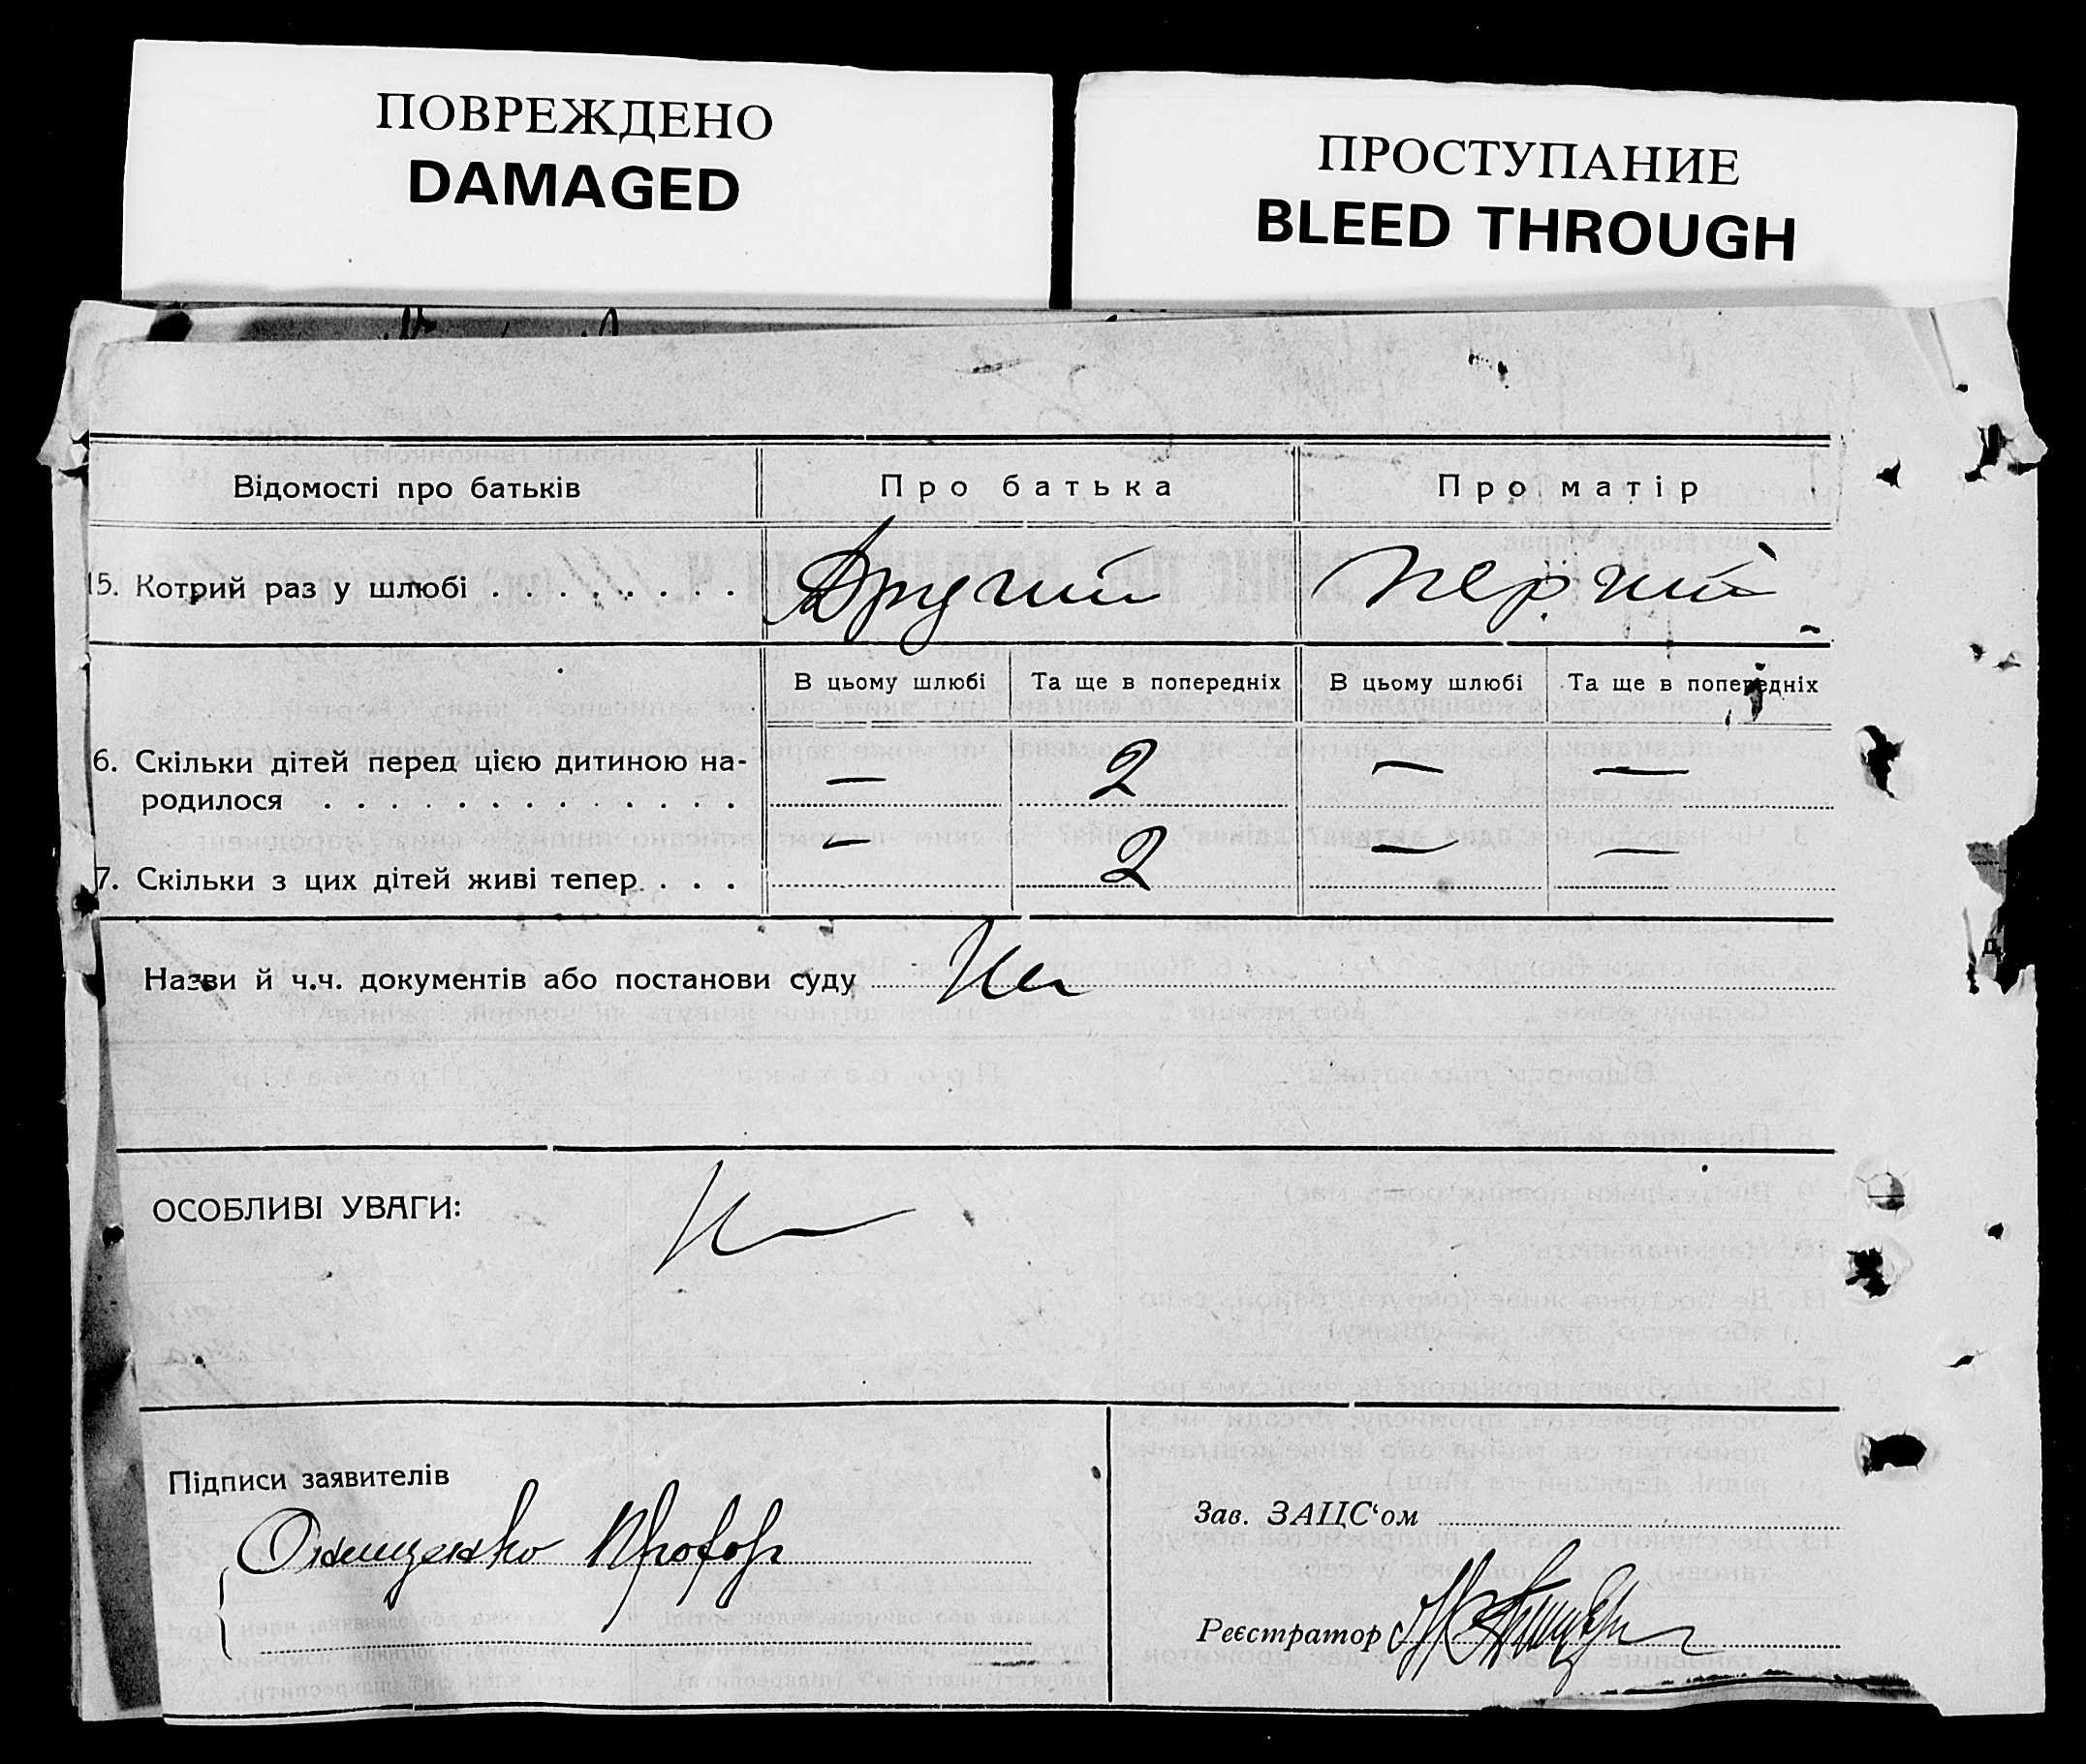 ПОВРЕЖДЕНО
DAMAGED
ПРОСТУПАНИЕ
BLEED THROUGH
Відомості про батьків Про батька Про матір
15. Котрий раз у шлюбі . . . . . . . . Другий Перший
В цьому шлюбі Та ще в попередніх В цьому шлюбі Та ще в попередніх
6. Скільки дітей перед цією дитиною на- — 2 — —
родилося . . . . . . . . . . . . .
7. Скільки з цих дітей живі тепер . . . — 2 — —
Назви й ч.ч. документів або постанови суду
ОСОБЛИВІ УВАГИ:
Підписи заявителів
Онищенко Прохор
Зав. ЗАЦС‘ом
Реєстратор